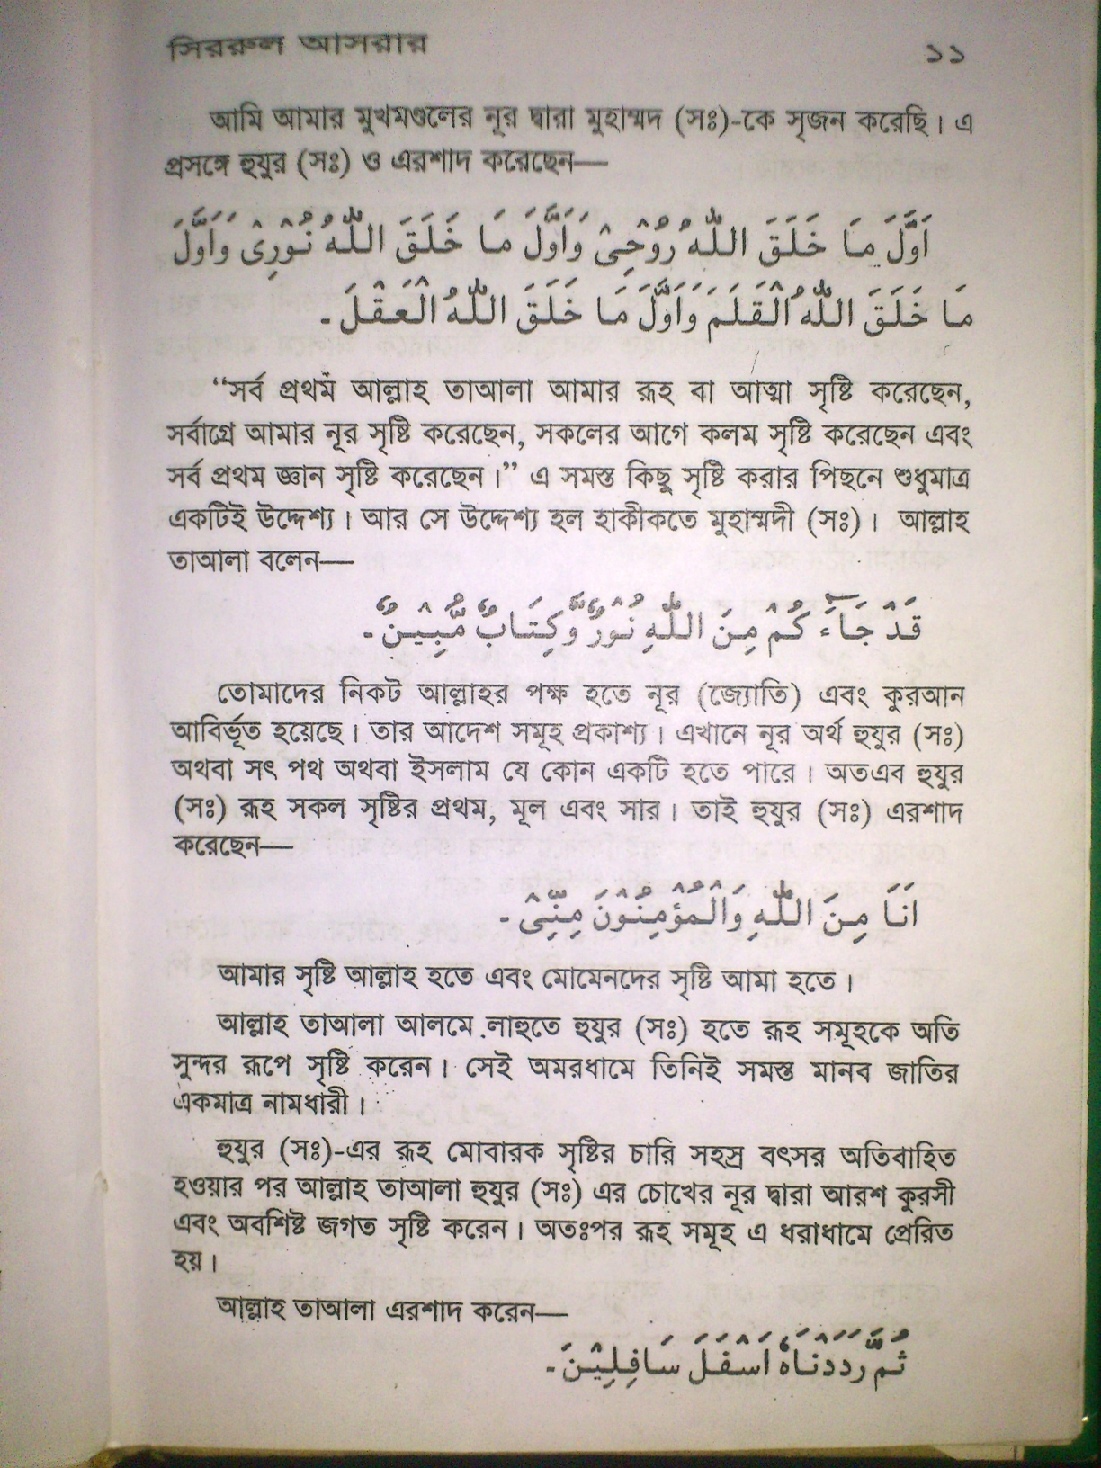 সিররুল আসরার ১১
আমি আমার মুখমণ্ডলের নূর দ্বারা মুহাম্মদ (সঃ)-কে সৃজন করেছি। এ
প্রসঙ্গে হুযুর (সঃ) ও এরশাদ করেছেন—
اَوَّلَ مَا خَلَقَ اللّٰهُ رُوْحِىْ وَاَوَّلَ مَا خَلَقَ اللّٰهُ نُوْرِىْ وَاَوَّلَ
مَا خَلَقَ اللّٰهُ الْقَلَمَ وَاَوَّلَ مَا خَلَقَ اللّٰهُ الْعَقْلَ۔
“সর্ব প্রথম আল্লাহ তাআলা আমার রূহ বা আত্মা সৃষ্টি করেছেন,
সর্বাগ্রে আমার নূর সৃষ্টি করেছেন, সকলের আগে কলম সৃষ্টি করেছেন এবং
সর্ব প্রথম জ্ঞান সৃষ্টি করেছেন।” এ সমস্ত কিছু সৃষ্টি করার পিছনে শুধুমাত্র
একটিই উদ্দেশ্য। আর সে উদ্দেশ্য হল হাকীকতে মুহাম্মদী (সঃ)। আল্লাহ
তাআলা বলেন—
قَدْ جَاۤءَ كُمْ مِنَ اللّٰهِ نُوْرٌ وَّكِتَابٌ مُّبِيْنٌ۔
তোমাদের নিকট আল্লাহর পক্ষ হতে নূর (জ্যোতি) এবং কুরআন
আবির্ভূত হয়েছে। তার আদেশ সমূহ প্রকাশ্য। এখানে নূর অর্থ হুযুর (সঃ)
অথবা সৎ পথ অথবা ইসলাম যে কোন একটি হতে পারে। অতএব হুযুর
(সঃ) রূহ সকল সৃষ্টির প্রথম, মূল এবং সার। তাই হুযুর (সঃ) এরশাদ
করেছেন—
اَنَا مِنَ اللّٰهِ وَالْمُؤْمِنُوْنَ مِنِّىْ۔
আমার সৃষ্টি আল্লাহ হতে এবং মোমেনদের সৃষ্টি আমা হতে।
আল্লাহ তাআলা আলমে লাহুতে হুযুর (সঃ) হতে রূহ সমূহকে অতি
সুন্দর রূপে সৃষ্টি করেন। সেই অমরধামে তিনিই সমস্ত মানব জাতির
একমাত্র নামধারী।
হুযুর (সঃ)-এর রূহ মোবারক সৃষ্টির চারি সহস্র বৎসর অতিবাহিত
হওয়ার পর আল্লাহ তাআলা হুযুর (সঃ) এর চোখের নূর দ্বারা আরশ কুরসী
এবং অবশিষ্ট জগত সৃষ্টি করেন। অতঃপর রূহ সমূহ এ ধরাধামে প্রেরিত
হয়।
আল্লাহ তাআলা এরশাদ করেন—
ثُمَّ رَدَدْنَاهُ اَسْفَلَ سَافِلِيْنَ۔